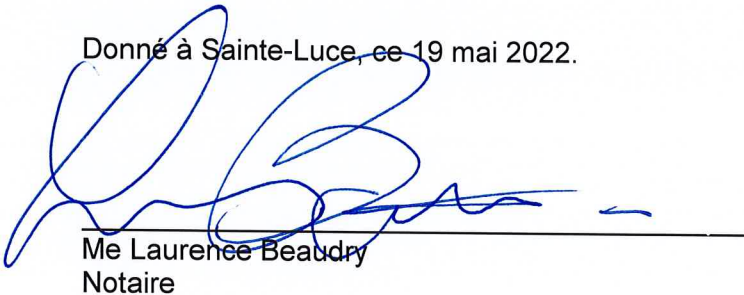 Donné à Sainte-Luce, ce 19 mai 2022.
Me Laurence Beaudry
Notaire